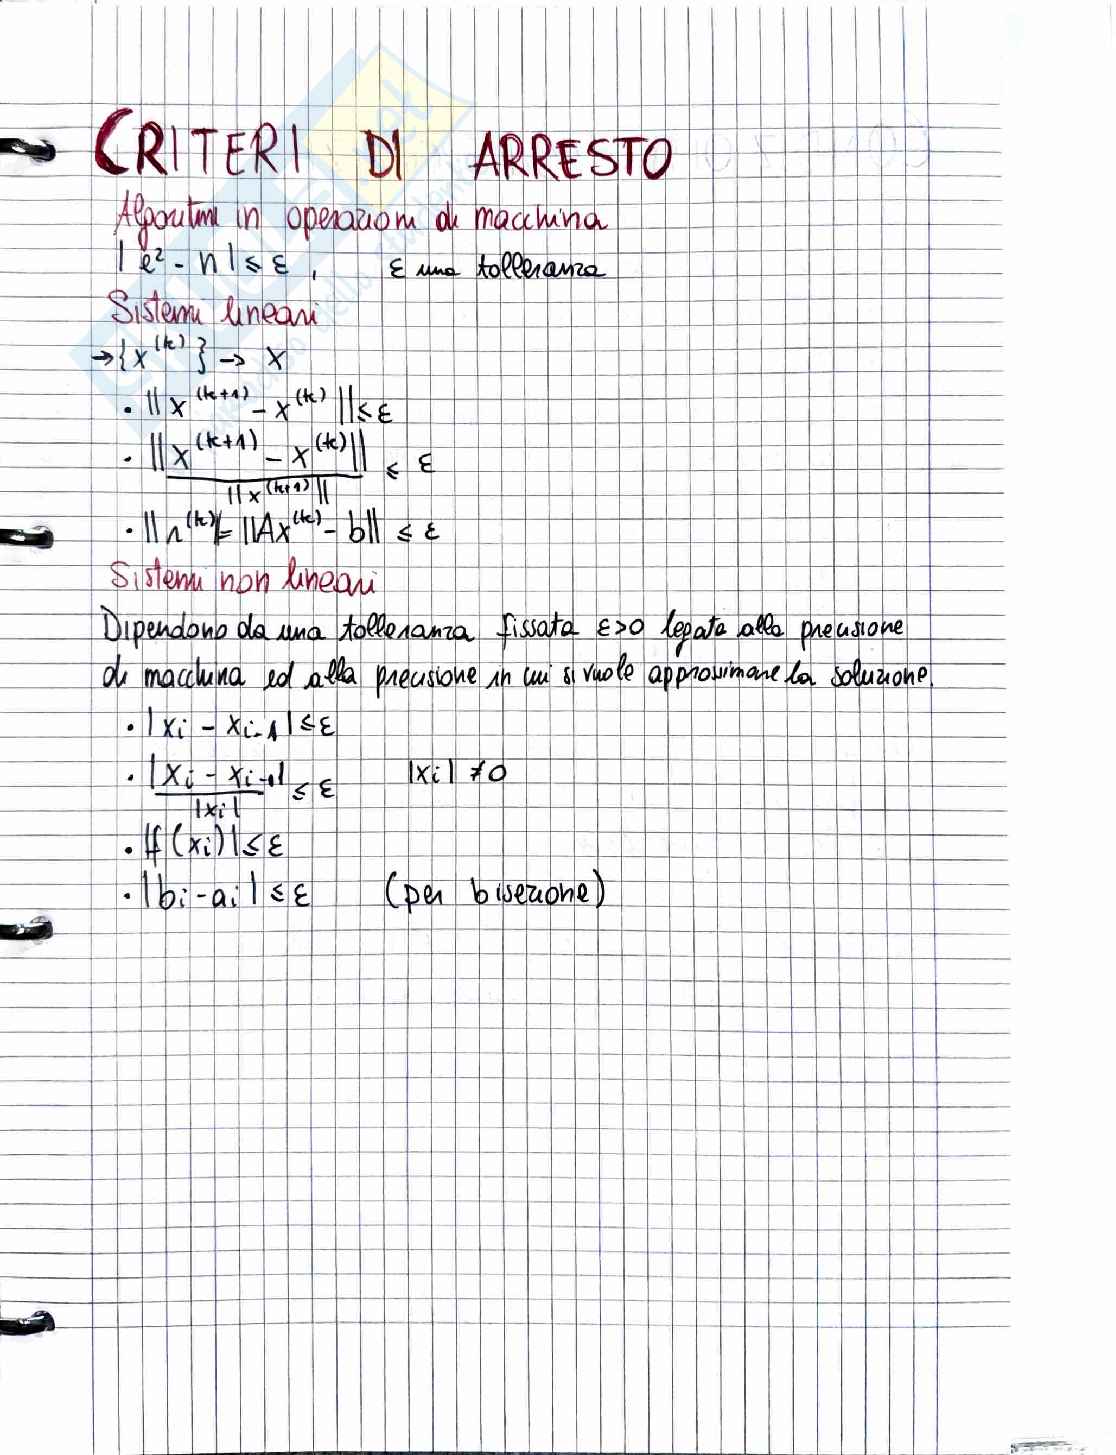 CRITERI DI ARRESTO
Algoritmi in operazioni di macchina
| e² - n | ≤ ε , ε una tolleranza
Sistemi lineari
→ {x^(k)} → x
• ||x^(k+1) - x^(k)|| ≤ ε
• ||x^(k+1) - x^(k)|| / ||x^(k+1)|| ≤ ε
• ||r^(k)|| = ||Ax^(k) - b|| ≤ ε
Sistemi non lineari
Dipendono da una tolleranza fissata ε>0 legata alla precisione
di macchina ed alla precisione in cui si vuole approssimare la soluzione.
• |xi - xi-1| ≤ ε
• |xi - xi-1| / |xi| ≤ ε |xi| ≠ 0
• |f(xi)| ≤ ε
• |bi - ai| ≤ ε (per bisezione)